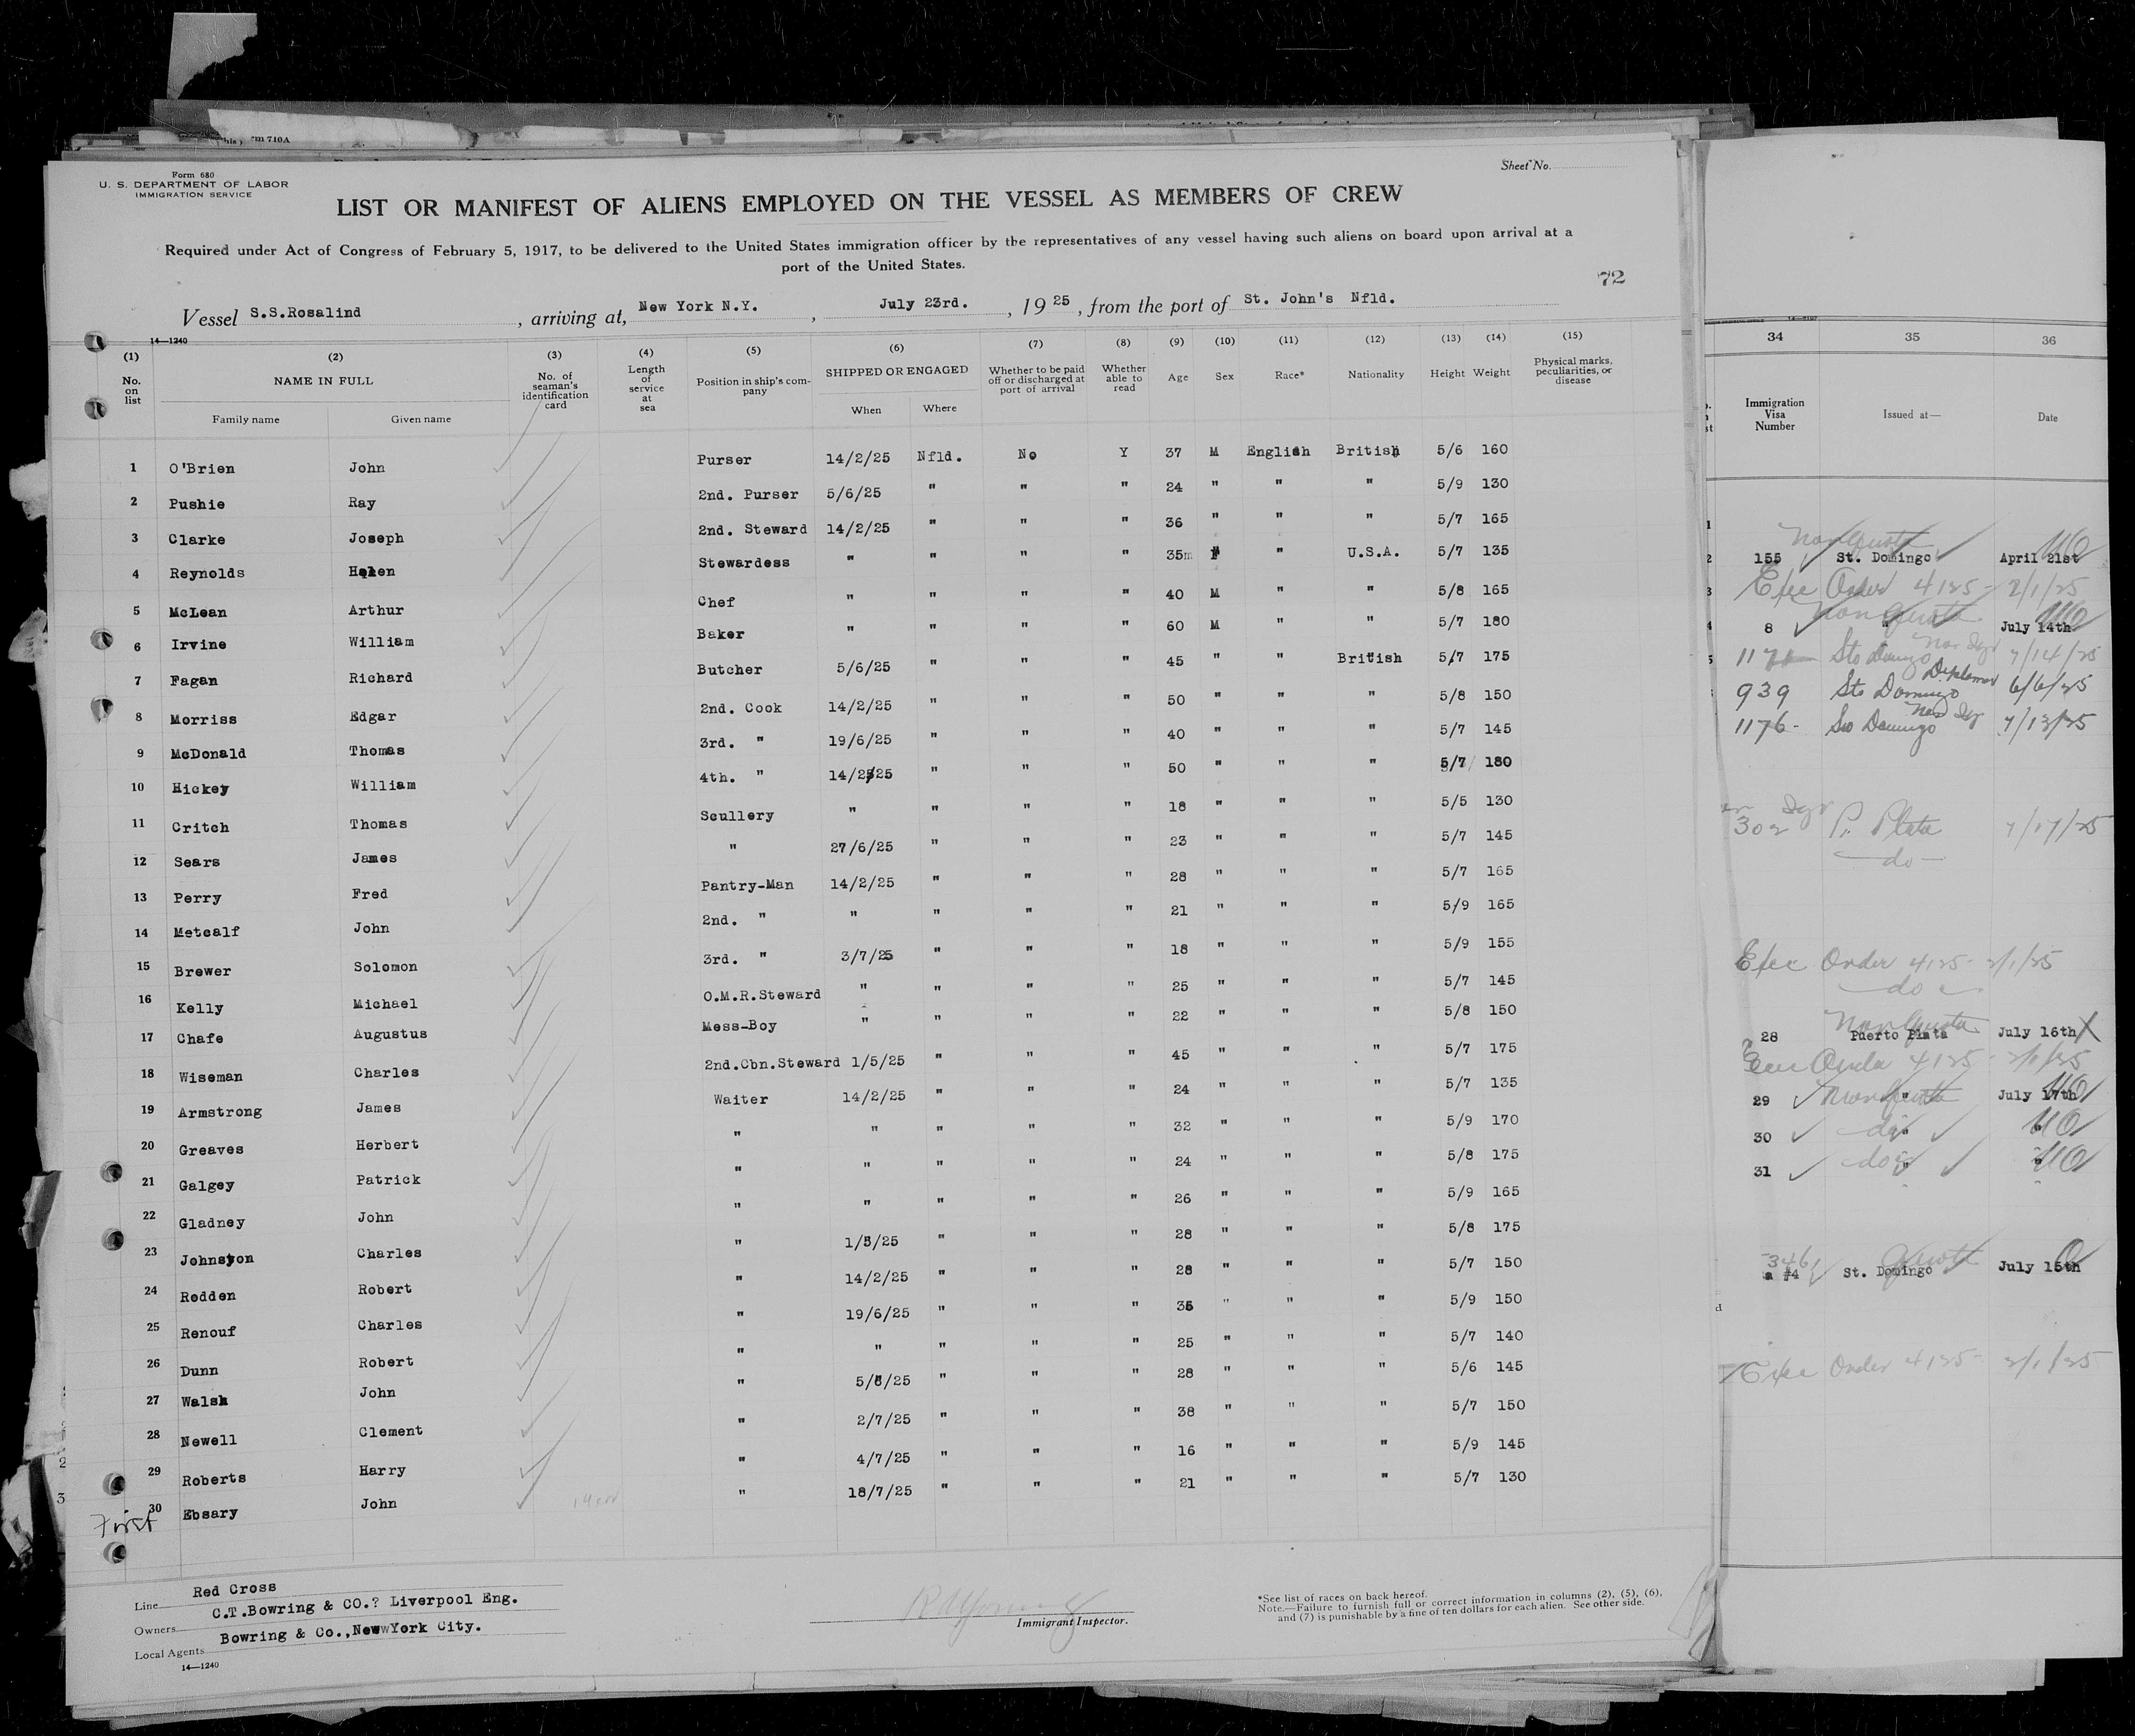 his) rm 710A
Form 680
U. S. DEPARTMENT OF LABOR
IMMIGRATION SERVICE
Sheet No.
LIST OR MANIFEST OF ALIENS EMPLOYED ON THE VESSEL AS MEMBERS OF CREW
Required under Act of Congress of February 5, 1917, to be delivered to the United States immigration officer by the representatives of any vessel having such aliens on board upon arrival at a
port of the United States.
72
Vessel S.S.Rosalind , arriving at, New York N.Y. , July 23rd. , 19 25 , from the port of St. John's Nfld.
14—1240
(1) (2) (3) (4) (5) (6) (7) (8) (9) (10) (11) (12) (13) (14) (15)
No. on list NAME IN FULL No. of seaman's identification card Length of service at sea Position in ship's company SHIPPED OR ENGAGED Whether to be paid off or discharged at port of arrival Whether able to read Age Sex Race* Nationality Height Weight Physical marks, peculiarities, or disease
Family name Given name When Where
1 O'Brien John Purser 14/2/25 Nfld. No Y 37 M English British 5/6 160
2 Pushie Ray 2nd. Purser 5/6/25 " " " 24 " " " 5/9 130
3 Clarke Joseph 2nd. Steward 14/2/25 " " " 36 " " " 5/7 165
4 Reynolds Helen Stewardess " " " " 35m F " U.S.A. 5/7 135
5 McLean Arthur Chef " " " " 40 M " " 5/8 165
6 Irvine William Baker " " " " 60 M " " 5/7 180
7 Fagan Richard Butcher 5/6/25 " " " 45 " " British 5/7 175
8 Morriss Edgar 2nd. Cook 14/2/25 " " " 50 " " " 5/8 150
9 McDonald Thomas 3rd. " 19/6/25 " " " 40 " " " 5/7 145
10 Hickey William 4th. " 14/2/25 " " " 50 " " " 5/7 180
11 Critch Thomas Scullery " " " " 18 " " " 5/5 130
12 Sears James " 27/6/25 " " " 23 " " " 5/7 145
13 Perry Fred Pantry-Man 14/2/25 " " " 28 " " " 5/7 165
14 Metcalf John 2nd. " " " " " 21 " " " 5/9 165
15 Brewer Solomon 3rd. " 3/7/25 " " " 18 " " " 5/9 155
16 Kelly Michael O.M.R.Steward " " " " 25 " " " 5/7 145
17 Chafe Augustus Mess-Boy " " " " 22 " " " 5/8 150
18 Wiseman Charles 2nd.Cbn.Steward 1/5/25 " " " 45 " " " 5/7 175
19 Armstrong James Waiter 14/2/25 " " " 24 " " " 5/7 135
20 Greaves Herbert " " " " " 32 " " " 5/9 170
21 Galgey Patrick " " " " " 24 " " " 5/8 175
22 Gladney John " " " " " 26 " " " 5/9 165
23 Johnston Charles " 1/5/25 " " " 28 " " " 5/8 175
24 Redden Robert " 14/2/25 " " " 28 " " " 5/7 150
25 Renouf Charles " 19/6/25 " " " 35 " " " 5/9 150
26 Dunn Robert " " " " " 25 " " " 5/7 140
27 Walsh John " 5/6/25 " " " 28 " " " 5/6 145
28 Newell Clement " 2/7/25 " " " 38 " " " 5/7 150
29 Roberts Harry " 4/7/25 " " " 16 " " " 5/9 145
30 Ebsary John " 18/7/25 " " " 21 " " " 5/7 130
First
Line Red Cross
Owners C.T.Bowring & CO.? Liverpool Eng.
Local Agents Bowring & Co.,NewwYork City.
14—1240
Immigrant Inspector.
*See list of races on back hereof.
Note.—Failure to furnish full or correct information in columns (2), (5), (6),
and (7) is punishable by a fine of ten dollars for each alien. See other side.
34 35 36
Immigration Visa Number Issued at— Date
Non Quota
155 St. Domingo April 21st
Exec Order 4125 - 2/1/25
Non Quota
8 " July 14th
Sto Domingo 7/14/25
Diplomat
939 Sto Domingo 6/6/25
1176- Sto Domingo 7/13/25
302 P. Plata 7/17/25
do
Exec Order 4125 - 2/1/25
do
Non Quota
28 Puerto Plata July 16th
Exec Order 4125 - 2/1/25
29 Non Quota July 17th
30 do
31 do
Quota
a #4 St. Domingo July 15th
Exec Order 4125 - 2/1/25